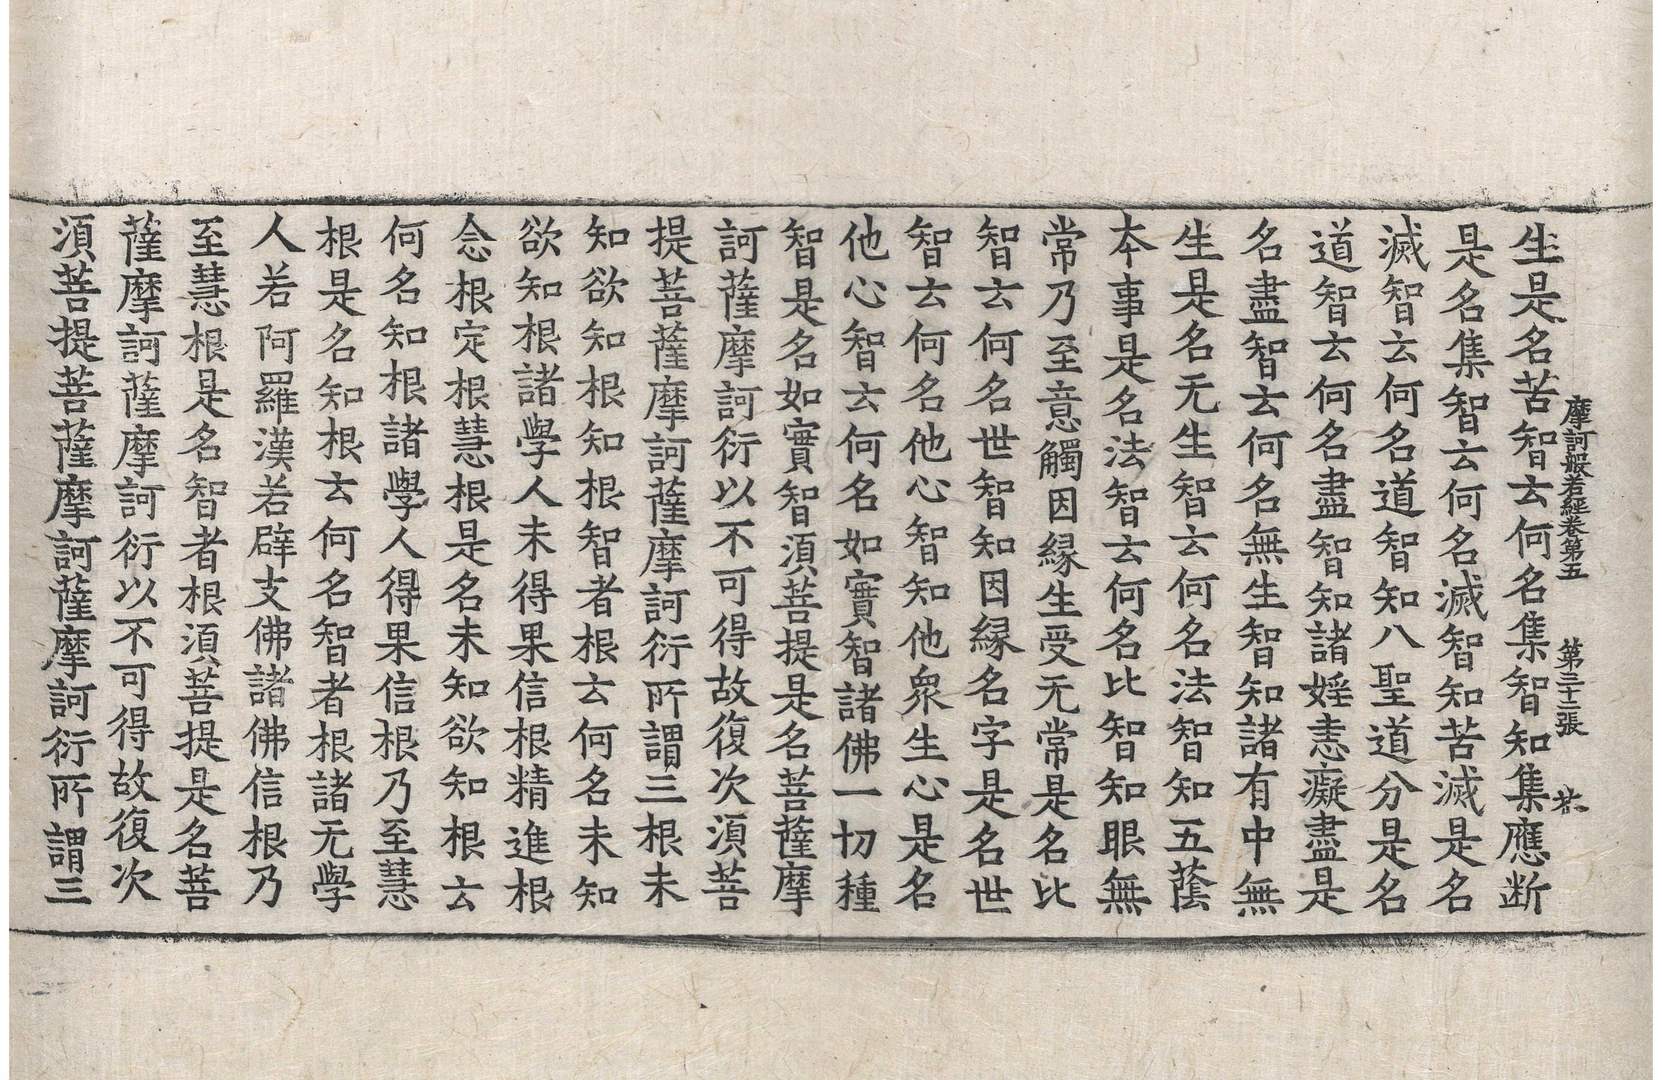 摩訶般若經卷第五 第三十二張 芥
生是名苦智云何名集智知集應断
是名集智云何名滅智知苦滅是名
滅智云何名道智知八聖道分是名
道智云何名盡智知諸婬恚癡盡是
名盡智云何名無生智知諸有中無
生是名无生智云何名法智知五蔭
本事是名法智云何名比智知眼無
常乃至意觸因緣生受无常是名比
智云何名世智知因緣名字是名世
智云何名他心智知他衆生心是名
他心智云何名如實智諸佛一切種
智是名如實智須菩提是名菩薩摩
訶薩摩訶衍以不可得故復次須菩
提菩薩摩訶薩摩訶衍所謂三根未
知欲知根知根智者根云何名未知
欲知根諸學人未得果信根精進根
念根定根慧根是名未知欲知根云
何名知根諸學人得果信根乃至慧
根是名知根云何名智者根諸无學
人若阿羅漢若辟支佛諸佛信根乃
至慧根是名智者根須菩提是名菩
薩摩訶薩摩訶衍以不可得故復次
須菩提菩薩摩訶薩摩訶衍所謂三